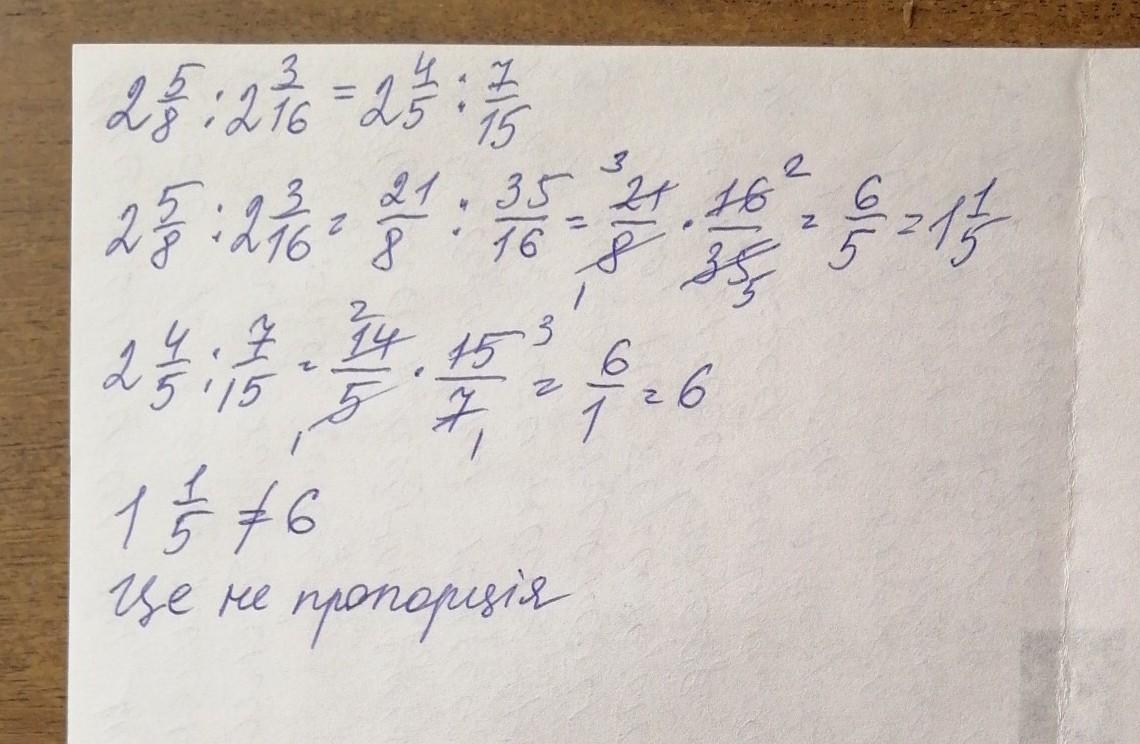 2 5/8 : 2 3/16 = 2 4/5 : 7/15
2 5/8 : 2 3/16 = 21/8 : 35/16 = 3 21/8 1 · 16 2/35 5 = 6/5 = 1 1/5
2 4/5 : 7/15 = 2 14/5 1 · 15 3/7 1 = 6/1 = 6
1 1/5 ≠ 6
Це не пропорція